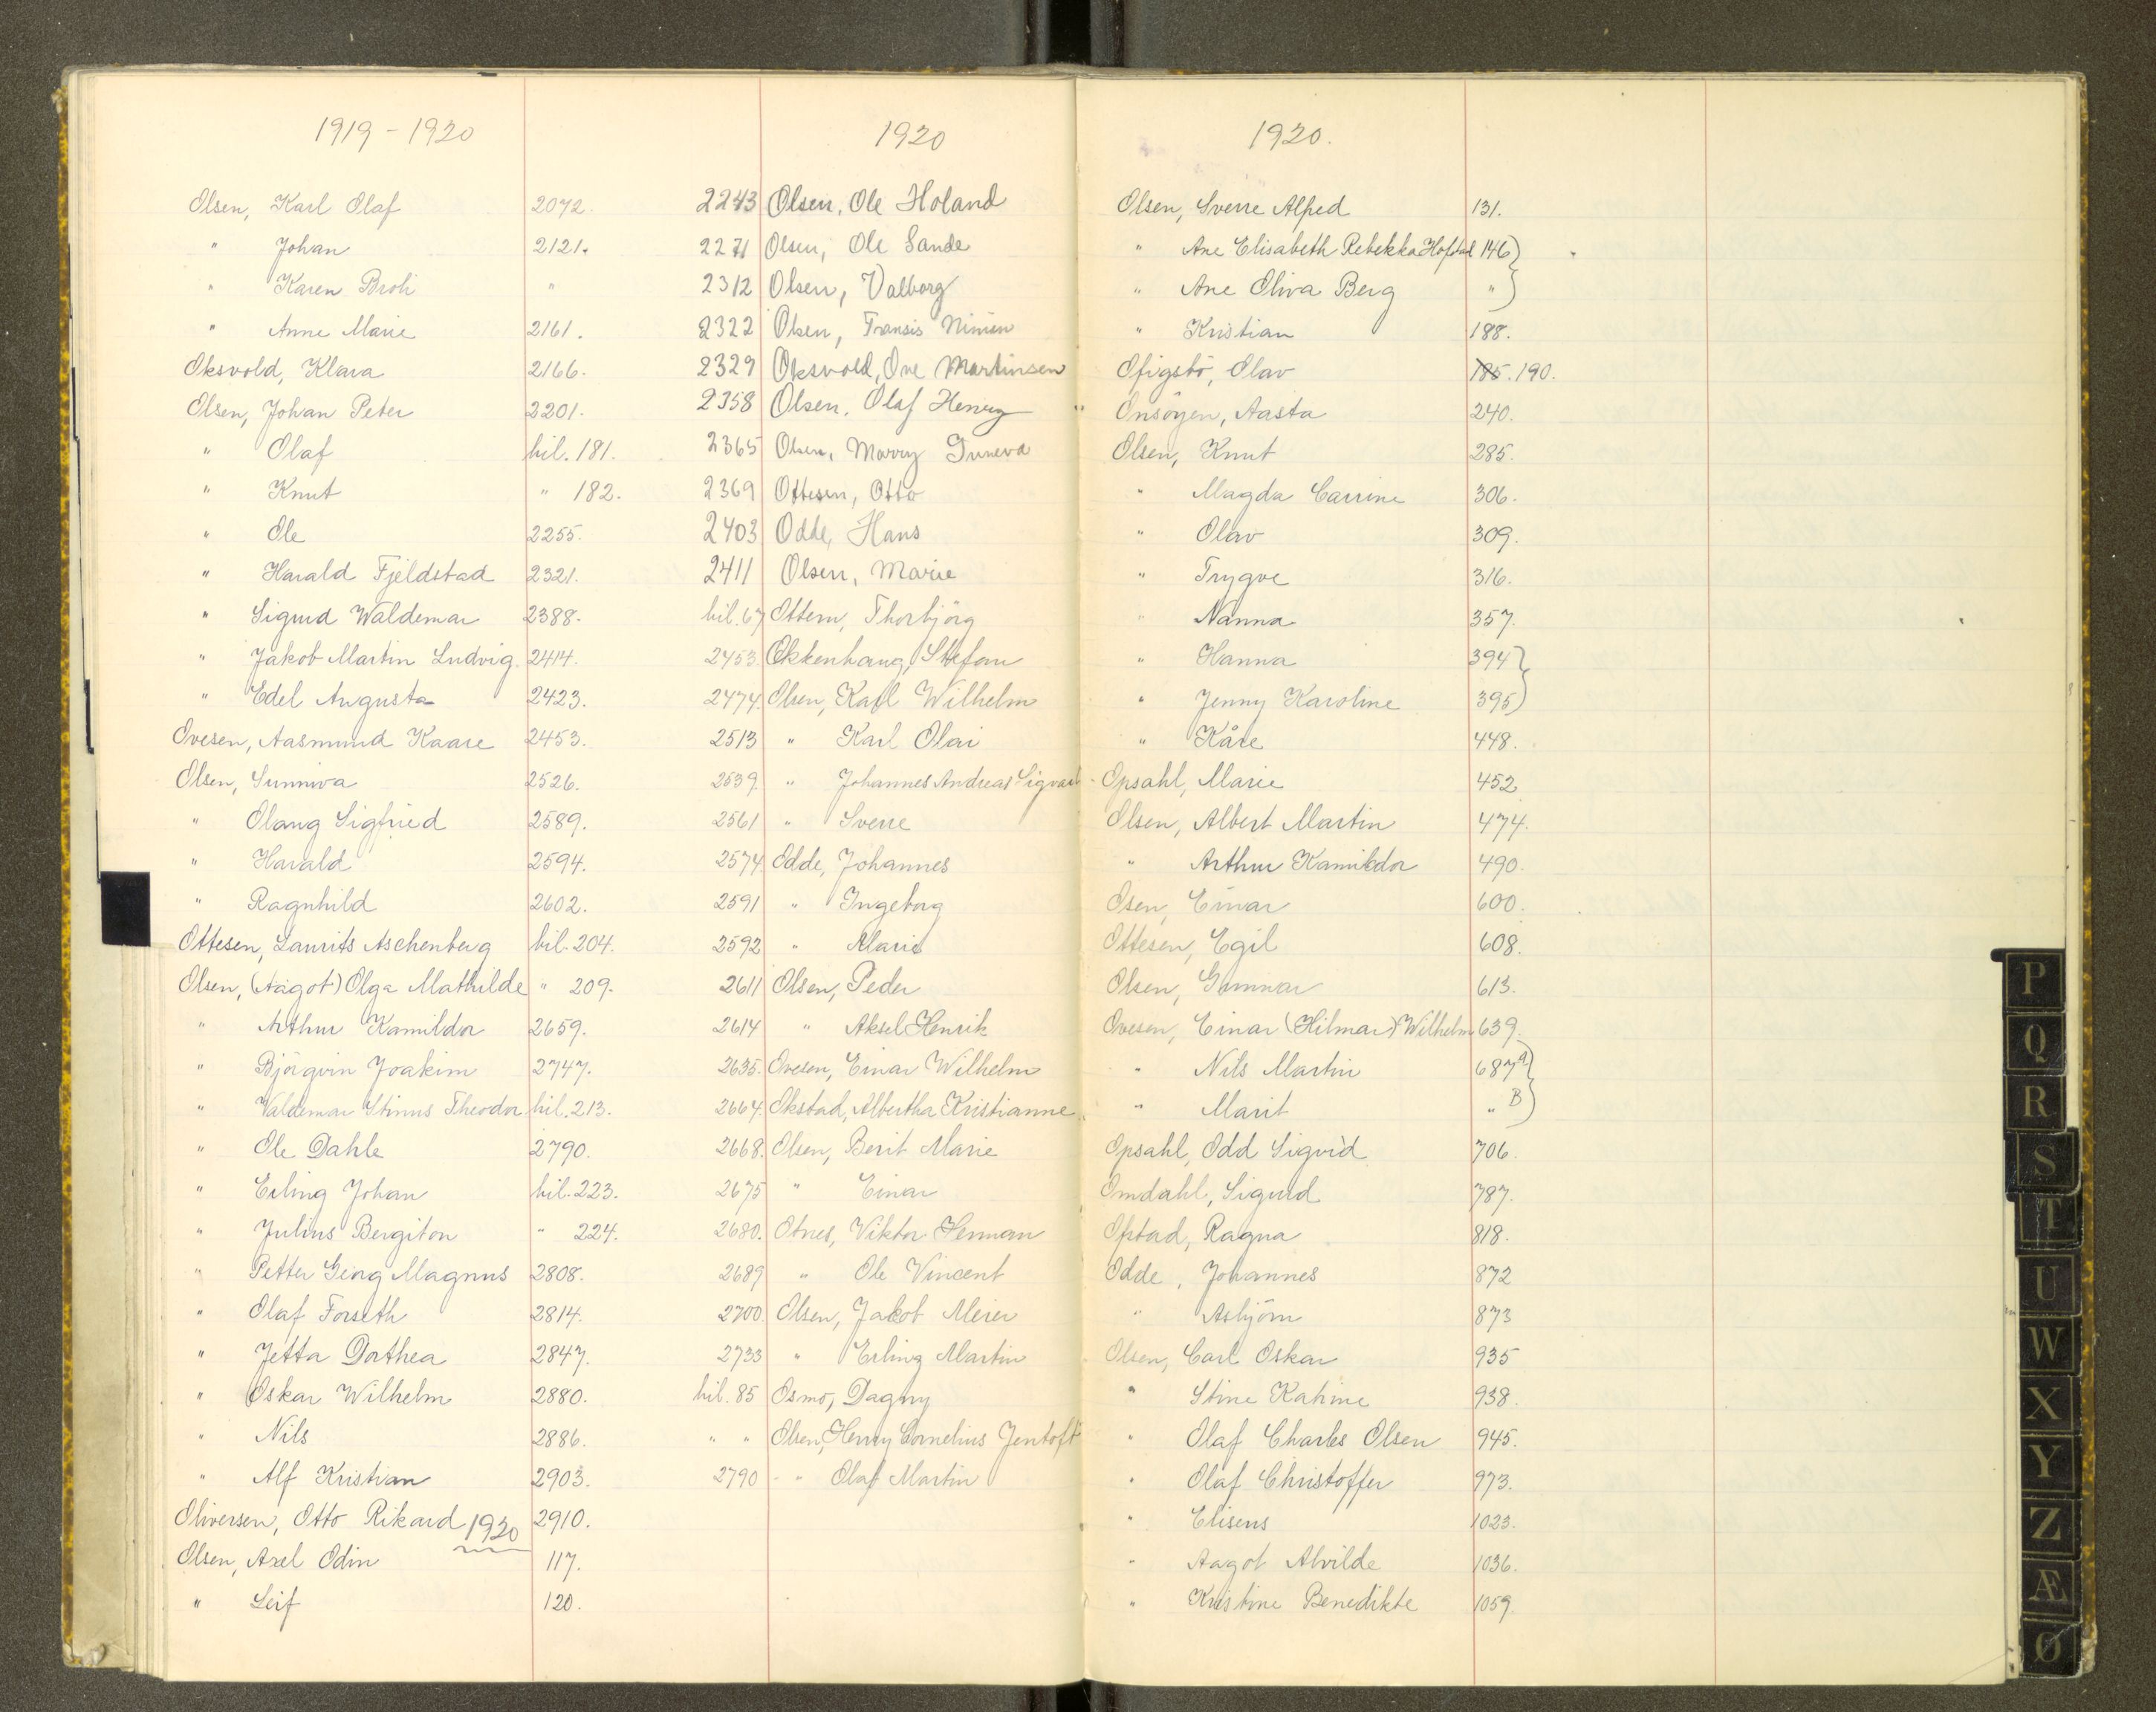 1919-1920
Olsen, Karl Olaf 2072.
" Johan 2121.
" Karen Broli "
" Anne Marie 2161.
Oksvold, Klara 2166.
Olsen, Johan Peter 2201.
" Olaf bil. 181.
" Knut " 182.
" Ole 2255.
" Harald Fjeldstad 2321.
" Sigurd Waldemar 2388.
" Jakob Martin Ludvig. 2414.
" Edel Augusta 2423.
Ovesen, Aasmund Kaare 2453.
Olsen, Sunniva 2526.
" Olaug Sigfried 2589.
" Harald 2594.
" Ragnhild 2602.
Ottesen, Laurits Aschenberg bil. 204.
Olsen, (Aagot) Olga Mathilde " 209.
" Arthur Kamildor 2659.
" Björgvin Joakim 2747.
" Valdemar Stinus Theodor bil. 213.
" Ole Dahle 2790.
" Erling Johan bil. 223.
" Julius Bergiton " 224.
" Petter Georg Magnus 2808.
" Olaf Forseth 2814.
" Jetta Dorthea 2847.
" Oskar Wilhelm 2880.
" Nils 2886.
" Alf Kristian 2903.
Oliversen, Otto Rikard 2910.
1920
Olsen, Axel Odin 117.
" Leif 120.
1920
2243 Olsen, Ole Holand
2271 Olsen, Ole Sande
2312 Olsen, Valborg
2322 Olsen, Fransis
2329 Oksvold, Ove Martinsen
2358 Olsen, Olaf Henry
2365 Olsen, Marry
2369 Ottesen, Otto
2403 Odde, Hans
2411 Olsen, Marie
bil. 67 Ottem, Thorbjörg
2453. Okkenhaug, Stefan
2474. Olsen, Karl Wilhelm
2513 " Karl Olai
2539 " Johannes Andreas
2561 " Sverre
2574. Odde, Johannes
2591 " Ingeborg
2592 " Marie
2611 Olsen, Peder
2614 " Aksel Henrik
2635. Ovesen, Einar Wilhelm
2664. Okstad, Albertha Kristianne
2668. Olsen, Berit Marie
2675 " Einar
2680. Otnes, Viktor Herman
2689 " Ole Vincent
2700. Olsen, Jakob Meier
2733 " Erling Martin
bil. 85 Osmo, Dagny
" " Olsen, Henry Cornelius Jentoft
2790 " Olaf Martin
1920.
Olsen, Sverre Alfred 131.
" Ane Elisabeth Rebekka 146
" Ane Oliva Berg "
" Kristian 188.
Ofigsbö, Olav 185. 190.
Onsöyen, Aasta 240.
Olsen, Knut 285.
" Magda Carrine 306.
" Olav 309.
" Trygve 316.
" Nanna 357.
" Hanna 394
" Jenny Karoline 395
" Kåre 448.
Opsahl, Marie 452
Olsen, Albert Martin 474.
" Arthur Kamildor 490.
Osen, Einar 600.
Ottesen, Egil 608.
Olsen, Gunnar 613.
Ovesen, Einar (Hilmar) Wilhelm 639.
" Nils Martin 687a
" Marit " B
Opsahl, Odd Sigvid 706.
Omdahl, Sigurd 787.
Opstad, Ragna 818.
Odde, Johannes 872
" Asbjörn 873
Olsen, Carl Oskar 935
" Stine Katrine 938.
" Olaf Charles Olsen 945.
" Olaf Christoffer 973.
" Eliseus 1023.
" Aagot Alvilde 1036.
" Kristine Benedikte 1059.
P
Q
R
S
T
U
W
X
Y
Z
Æ
Ø